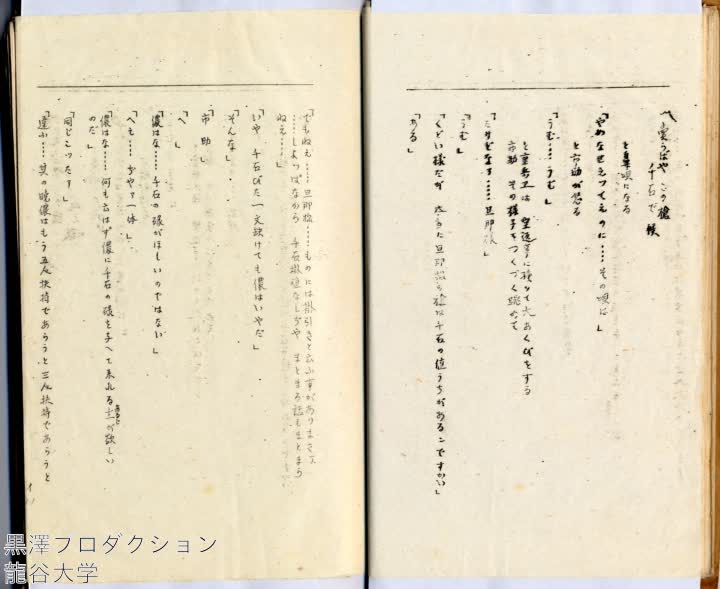 〽売らばや この槍
千石で 候
と鼻唄になる
「やめなせえってえのに……その唄は」
と市助が怒る
「うむ……うむ」
と 望遠亭に 大あくびをする
市助 その様子をつくづく眺めて
「たすをなす……旦那様」
「うむ」
「くどい様だが 旦那様の槍は千石の値うちがあるんですかい」
「ある」
「でもねえ……旦那様……ものには掛引きと云ふ事がありまさァ
……しょっぱなから 千石 なしぢや まとまる話もまとまら
ねえ……」
「いや 千石びた一文缺けても儂はいやだ」
「そんな」
「市助」
「へ」
「儂はな……千石の禄がほしいのではない」
「へえ……ぢやァ一体」
「儂はな……何も云はず儂に千石の禄を与へて来れる主が欲しい
のだ」
「同じこつたァ」
「違ふ……其の晩儂はもう五人扶持であらうと三人扶持であらうと
黒澤プロダクション
龍谷大学